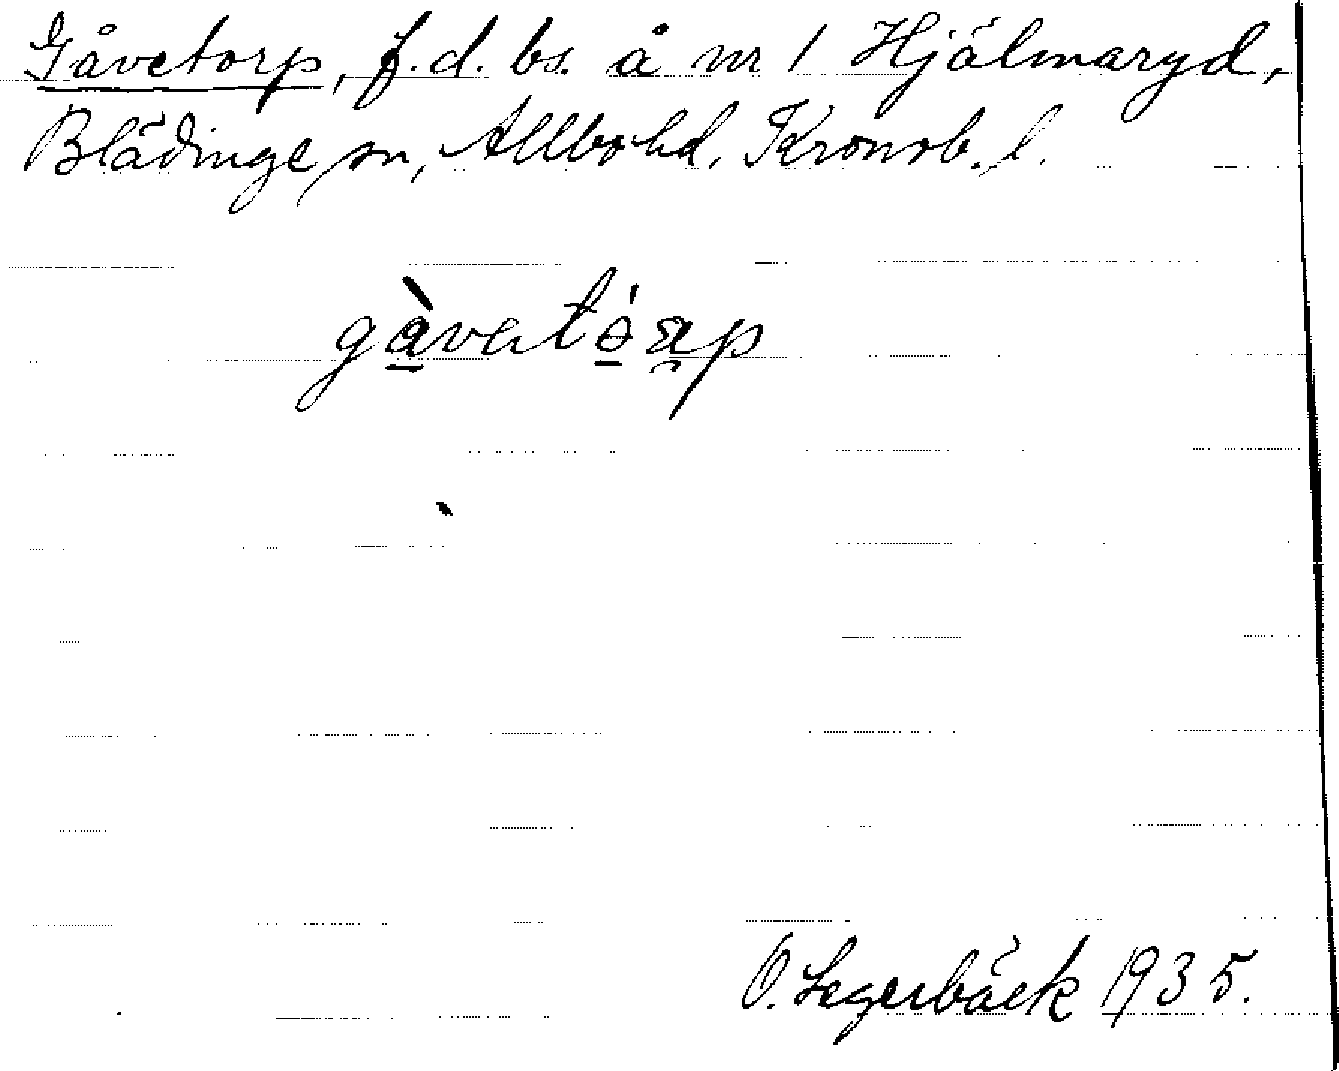 Gåvetorp, f.d. bs. å nr 1 Hjälmaryd,
Blädinge sn, Allbo hd, Kronob. l.
O. Segerbäck 1935.